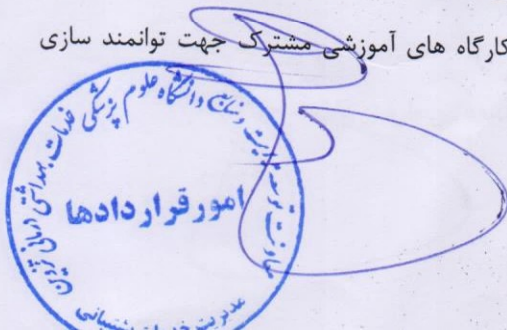 کارگاه های آموزشی مشترک جهت توانمند سازی
معاونت توسعه مدیریت و منابع دانشگاه علوم پزشکی
خدمات بهداشتی درمانی قزوین
امور قراردادها
مدیریت خدمات پشتیبانی